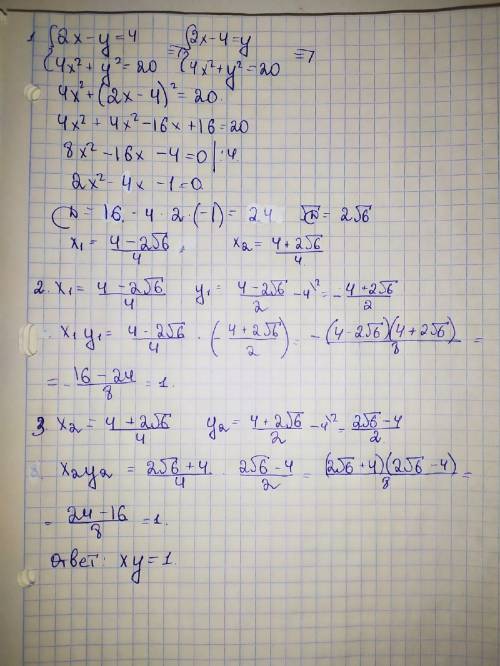 1. { 2x - y = 4 => { 2x - 4 = y =>
{ 4x² + y² = 20 { 4x² + y² = 20
4x² + (2x - 4)² = 20.
4x² + 4x² - 16x + 16 = 20
8x² - 16x - 4 = 0 | :4
2x² - 4x - 1 = 0
D = 16 - 4 · 2 · (-1) = 24 √D = 2√6
x₁ = (4 - 2√6)/4, x₂ = (4 + 2√6)/4
2. x₁ = (4 - 2√6)/4 y₁ = (4 - 2√6)/2 - 4\² = - (4 + 2√6)/2
x₁y₁ = (4 - 2√6)/4 · (- (4 + 2√6)/2) = - ((4 - 2√6)(4 + 2√6))/8 =
= - (16 - 24)/8 = 1.
3. x₂ = (4 + 2√6)/4 y₂ = (4 + 2√6)/2 - 4\² = (2√6 - 4)/2
x₂y₂ = (2√6 + 4)/4 · (2√6 - 4)/2 = ((2√6 + 4)(2√6 - 4))/8 =
= (24 - 16)/8 = 1.
Ответ: xy = 1.